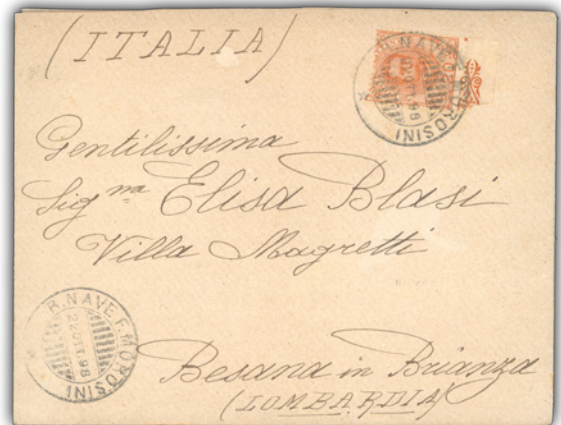 (ITALIA)
R. NAVE F. MOROSINI
Gentilissima
Sig.na Elisa Blasi
Villa Magretti
R. NAVE F. MOROSINI
22 OTT 98
Besana in Brianza
(LOMBARDIA)